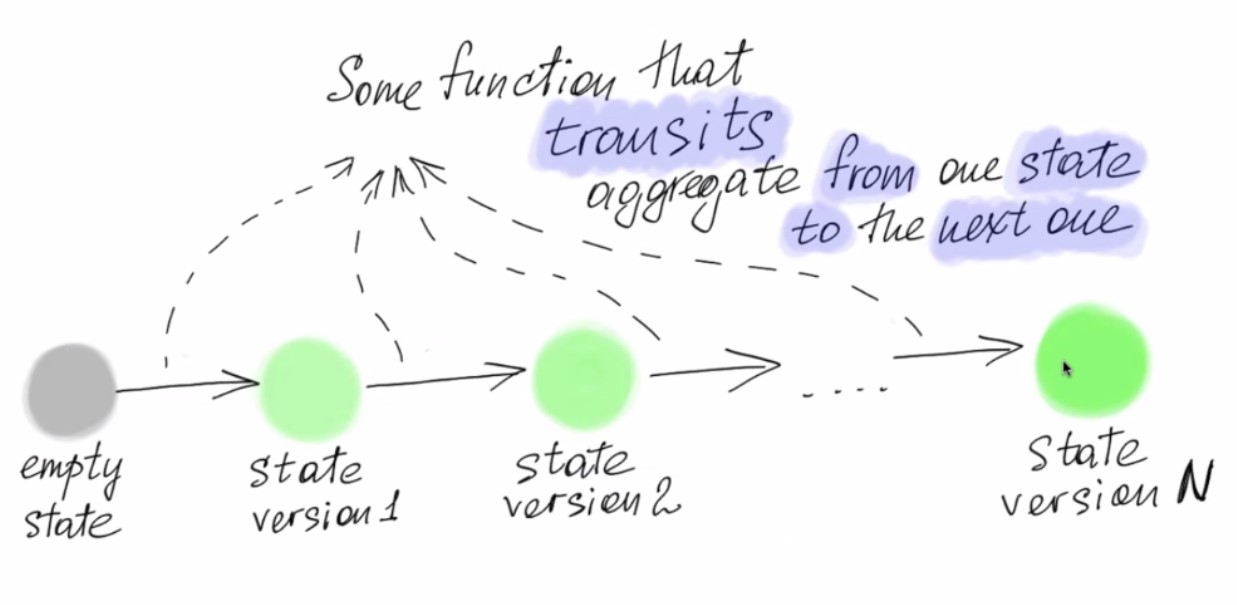 Some function that
transits
aggregate from one state
to the next one
....
empty
state
state
version 1
state
version 2
state
version N